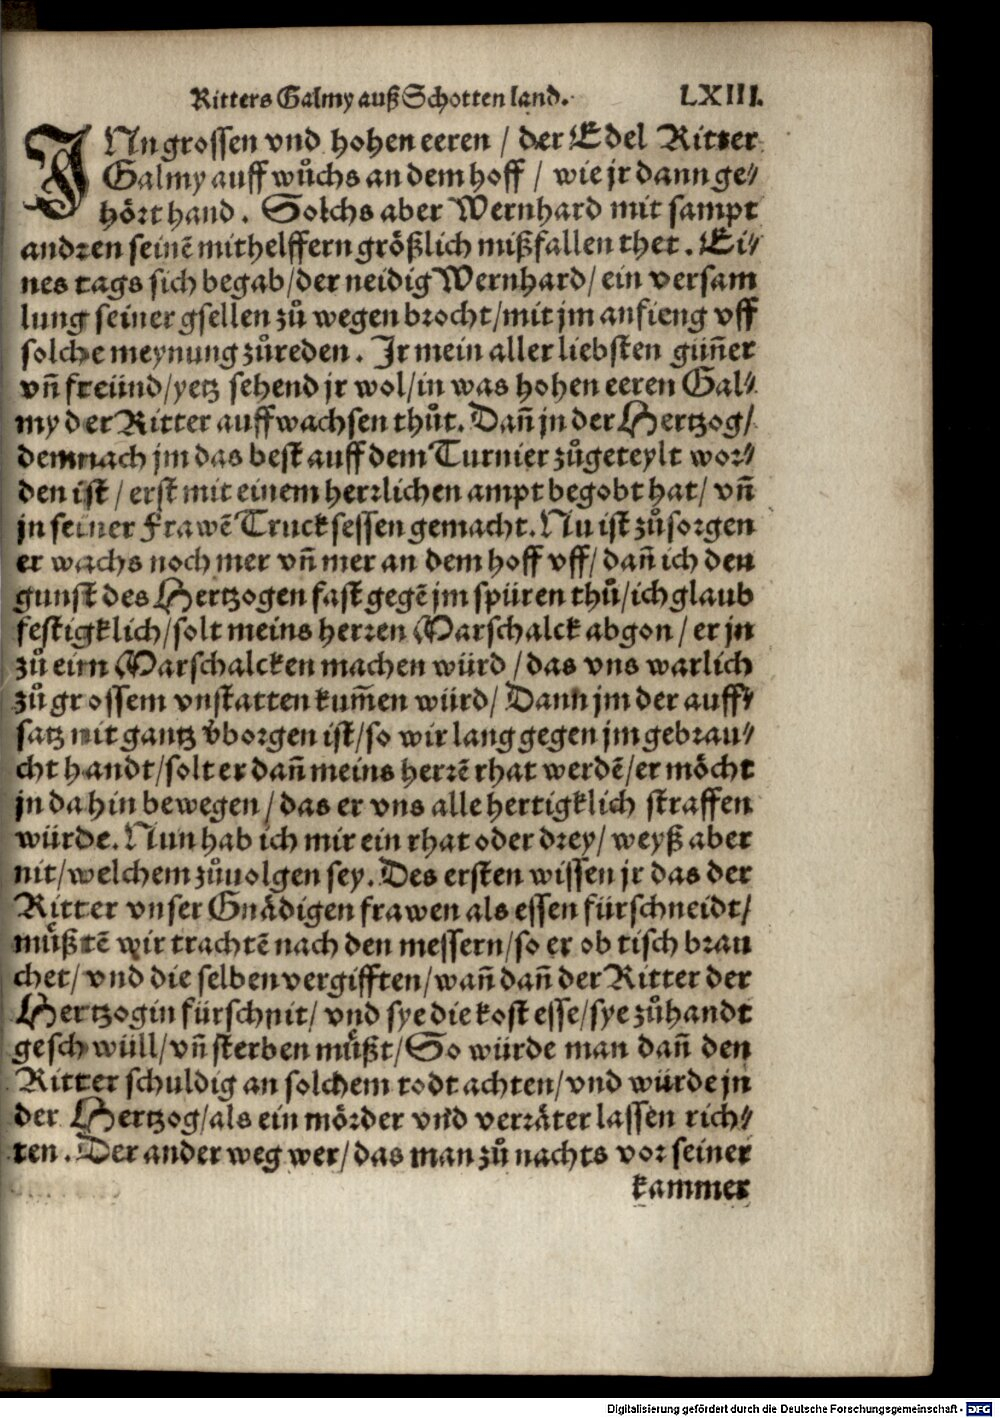 Ritters Galmy auß Schotten land. LXIII.
INn grossen vnd hohen eeren / der Edel Ritter
Galmy auff wůchs an dem hoff / wie jr dann ge⸗
hört hand. Solchs aber Wernhard mit sampt
andren seinē mithelffern größlich mißfallen thet. Ei⸗
nes tags sich begab/der neidig Wernhard/ ein versam
lung seiner gsellen zů wegen brocht/mit jm anfieng vff
solche meynung zůreden. Ir mein aller liebsten gün̄er
vn̄ freünd/yetz sehend jr wol/in was hohen eeren Gal⸗
my der Ritter auff wachsen thůt. Dan̄ jn der Hertzog/
demnach jm das best auff dem Turnier zůgeteylt wor⸗
den ist / erst mit einem herrlichen ampt begobt hat/ vn̄
jn seiner Frawē Trucksessen gemacht. Nu ist zů sorgen
er wachs noch mer vn̄ mer an dem hoff vff/ dan̄ ich den
gunst des Hertzogen fast gegē jm spüren thů/ich glaub
festigklich/solt meins herren Marschalck abgon / er jn
zů eim Marschalcken machen würd / das vns warlich
zů grossem vnstatten kum̄en würd/ Dann jm der auff⸗
satz nit gantz v̊borgen ist/so wir lang gegen jm gebrau⸗
cht handt/solt er dan̄ meins herrē rhat werdē/er möcht
jn dahin bewegen / das er vns alle hertigklich straffen
würde. Nun hab ich mir ein rhat oder drey/ weyß aber
nit/welchem zůuolgen sey. Des ersten wissen jr das der
Ritter vnser Gnädigen frawen als essen fürschneidt/
müßtē wir trachtē nach den messern/so er ob tisch brau
chet/ vnd die selben vergifften/wan̄ dan̄ der Ritter der
Hertzogin fürschnit/ vnd sye die kost esse/sye zůhandt
geschwüll/vn̄ sterben müßt/So würde man dan̄ den
Ritter schuldig an solchem todt achten/vnd würde jn
der Hertzog/als ein mörder vnd verräter lassen rich⸗
ten. Der ander weg wer/das man zů nachts vor seiner
kammer
Digitalisierung gefördert durch die Deutsche Forschungsgemeinschaft - DFG